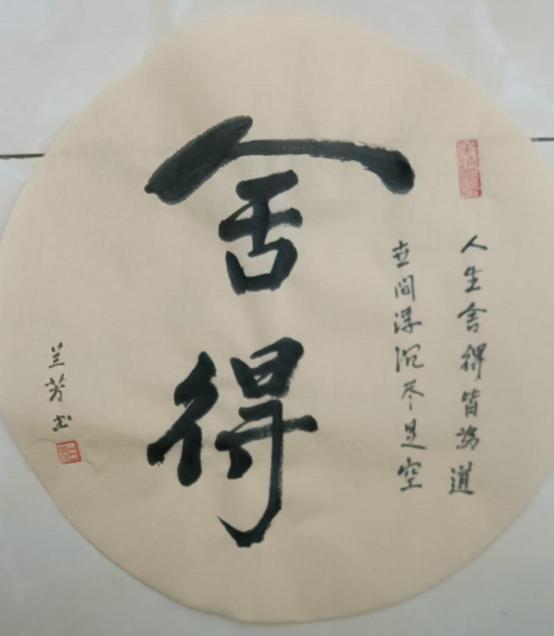 人生舍得皆為道
世间浮沉尽是空
舍得
兰芳书